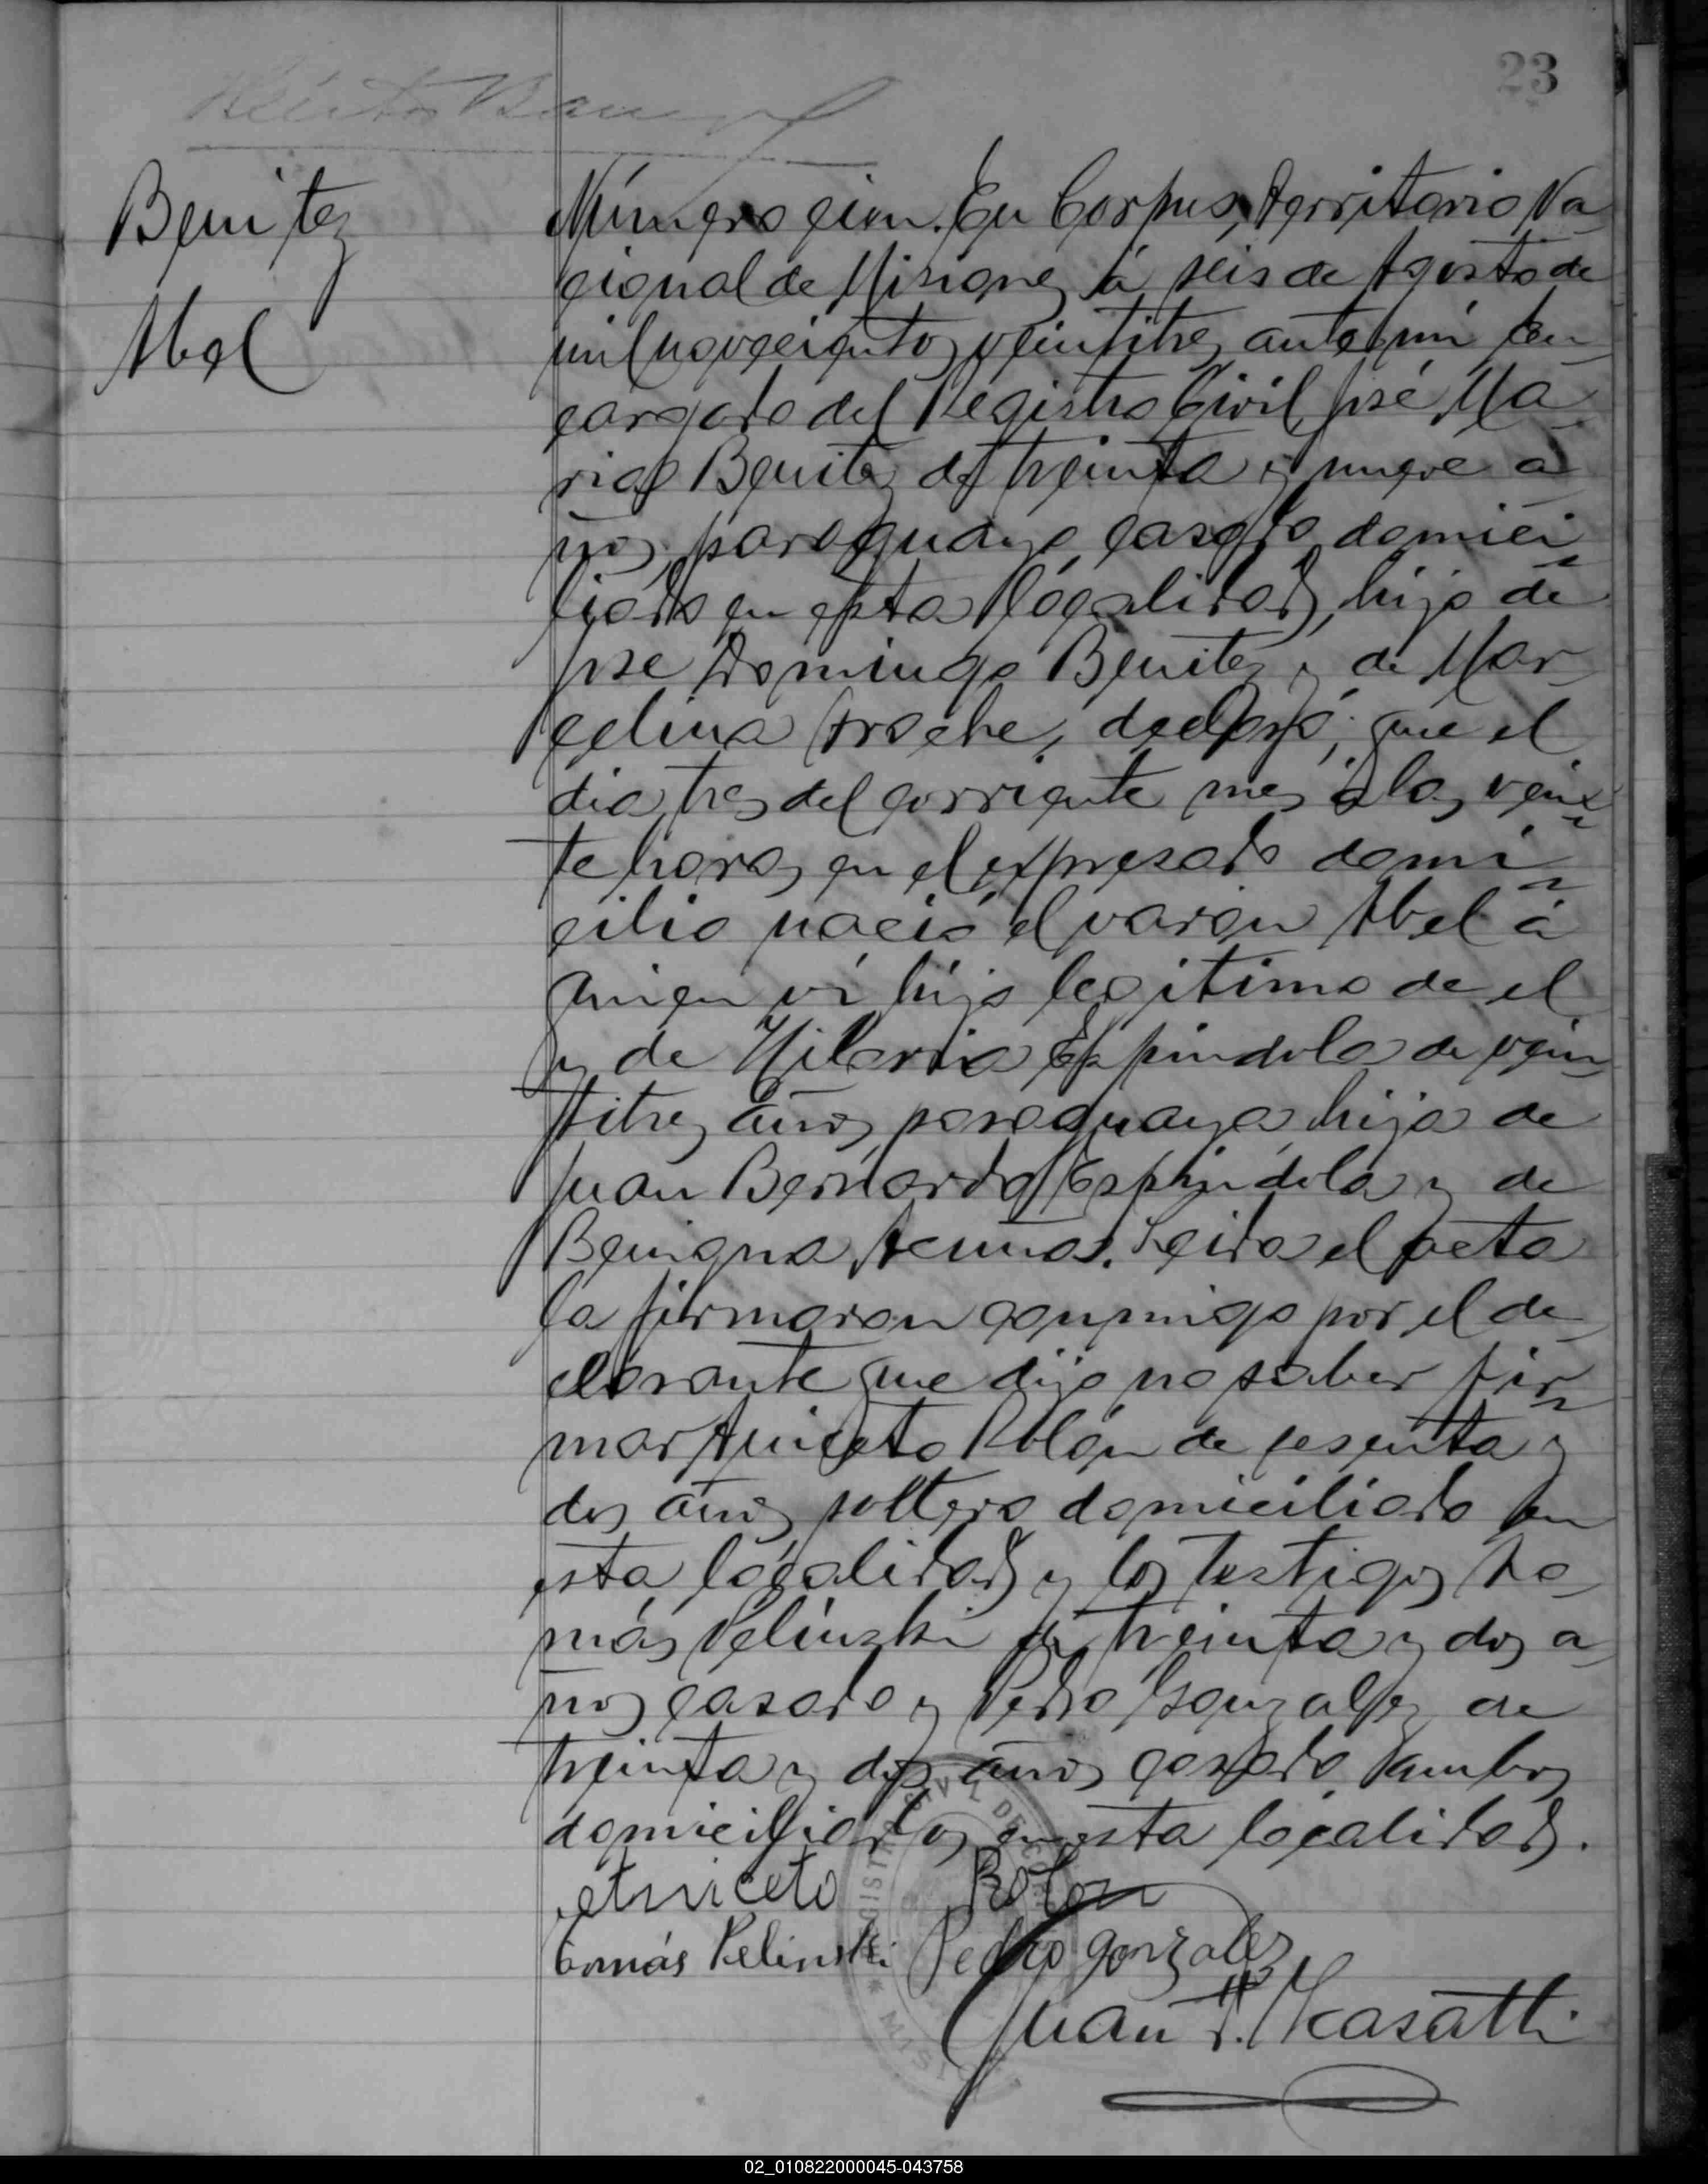 23
Benitez
Abel
Número cien. En Corpus, Territorio Na
cional de Misiones á seis de Agosto de
mil novecientos veintitres ante mí En
cargado del Registro Civil, José Ma
ria Benitez de treinta y nueve a
ños, paraguayo, casado domici
liado en esta localidad, hijo de
José Domingo Benitez y de Mar
celina Aroche, declaró; que el
dia tres del corriente mes á las vein
te horas en el expresado domi
cilio nació el varon Abel á
quien vi hijo legitimo de el
y de Hilaria Espindola de vein
titres años paraguaya hija de
Juan Bernardo Espindola y de
Benigna Acuña. Leida el acta
la firmaron conmigo por el de
clarante que dijo no saber fir
mar Aniceto Rolón de sesenta y
dos años soltero domiciliado en
esta localidad y los testigos To
más Pelinski de treinta y dos a
ños casado y Pedro Gonzalez de
treinta y dos años casado, ambos
domiciliados en esta localidad.
Aniceto Rolon
Tomás Pelinski Pedro Gonzalez
Juan Kasatti
02_010822000045-043758